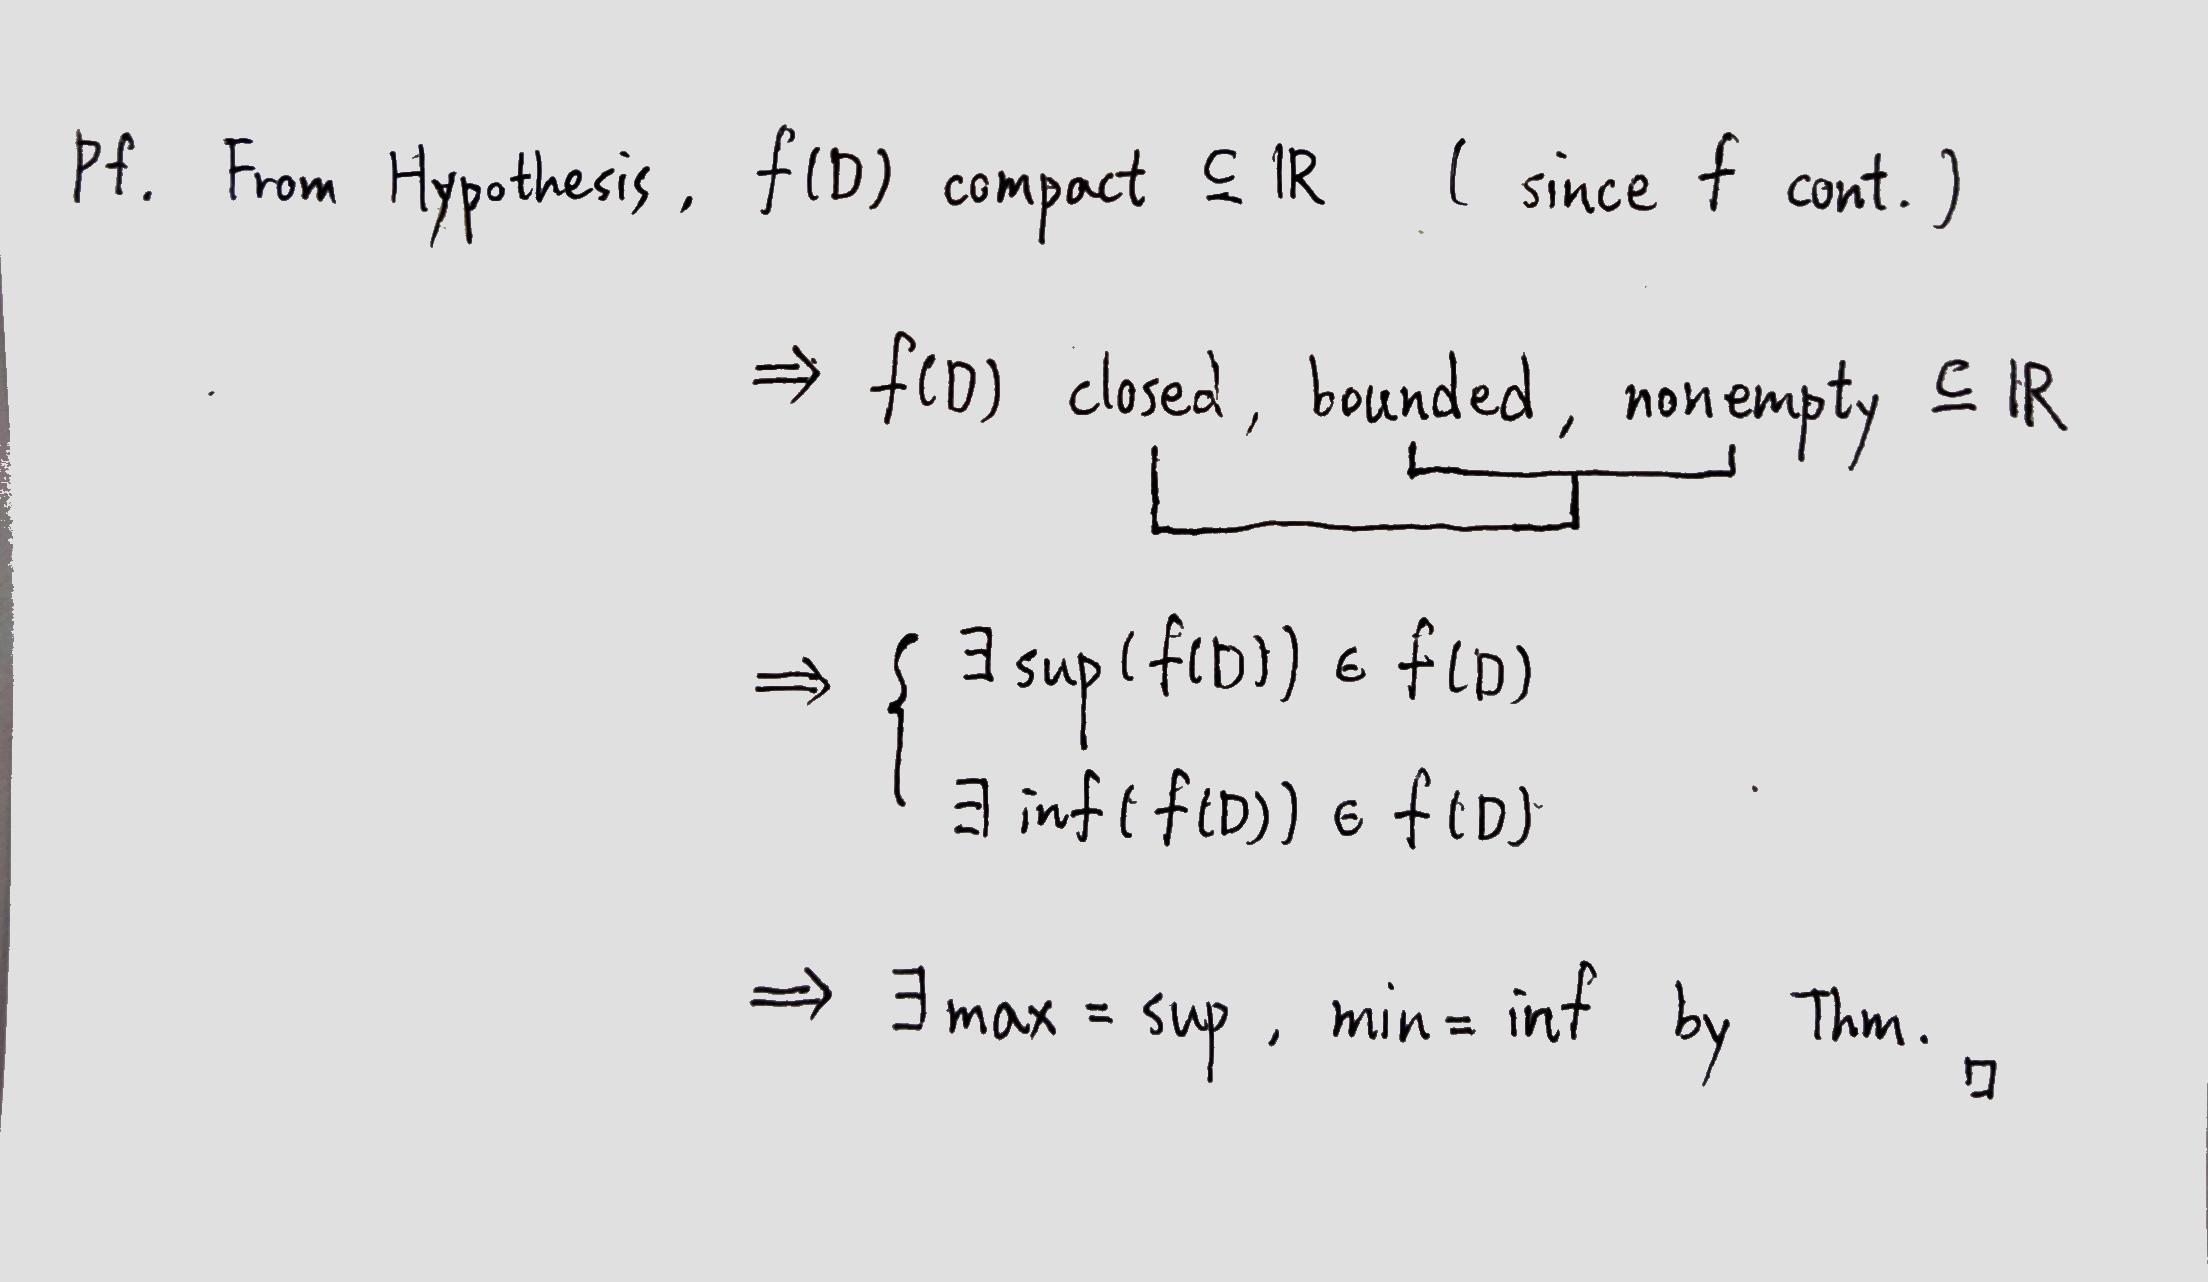 Pf. From Hypothesis, f(D) compact ⊆ ℝ ( since f cont.)
⇒ f(D) closed, bounded, nonempty ⊆ ℝ
⇒ { ∃ sup(f(D)) ∈ f(D)
∃ inf(f(D)) ∈ f(D)
⇒ ∃ max = sup, min = inf by Thm. □